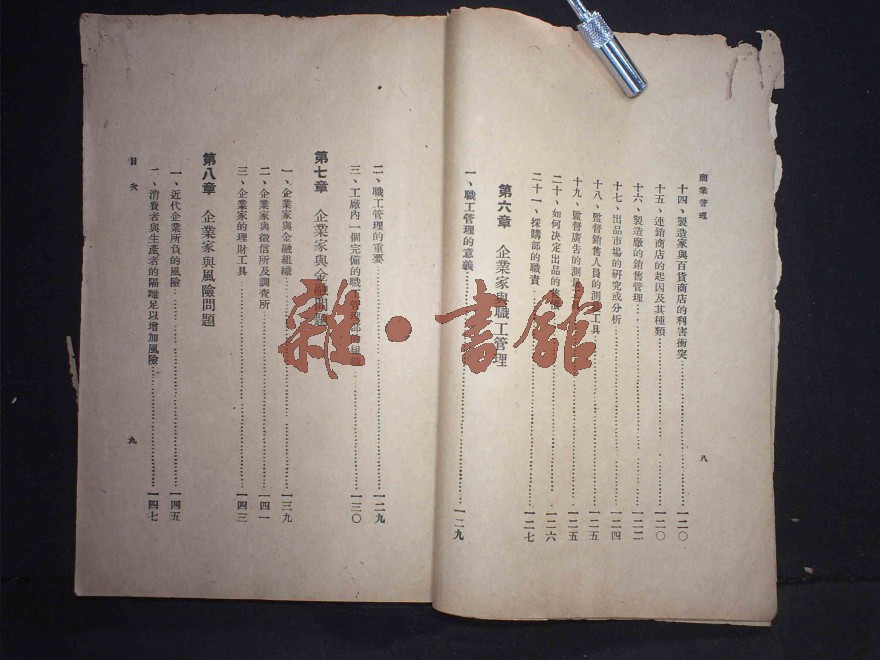 商業管理
八
十四、製造家與百貨商店的利害衝突……一二〇
十五、連銷商店的起因及其種類……一二〇
十六、製造廠的銷售管理……一二二
十七、出品市場的研究或分析……一二四
十八、監督銷售人員的測量工具……一二五
十九、監督廣告的測量……一二五
二十、如何決定出品的……一二六
二十一、採購部的職責……一二七
第六章 企業家與職工管理
一、職工管理的意義……一二九
二、職工管理的重要……一二九
三、工廠內一個完備的職工管理部的組織……一三〇
第七章 企業家與金融問題
一、企業家與金融組織……一三九
二、企業家與徵信所及調查所……一四一
三、企業家的理財工具……一四三
第八章 企業家與風險問題
一、近代企業所負的風險……一四五
一、消費者與生產者的隔離足以增加風險……一四七
目次
九
雜·書館